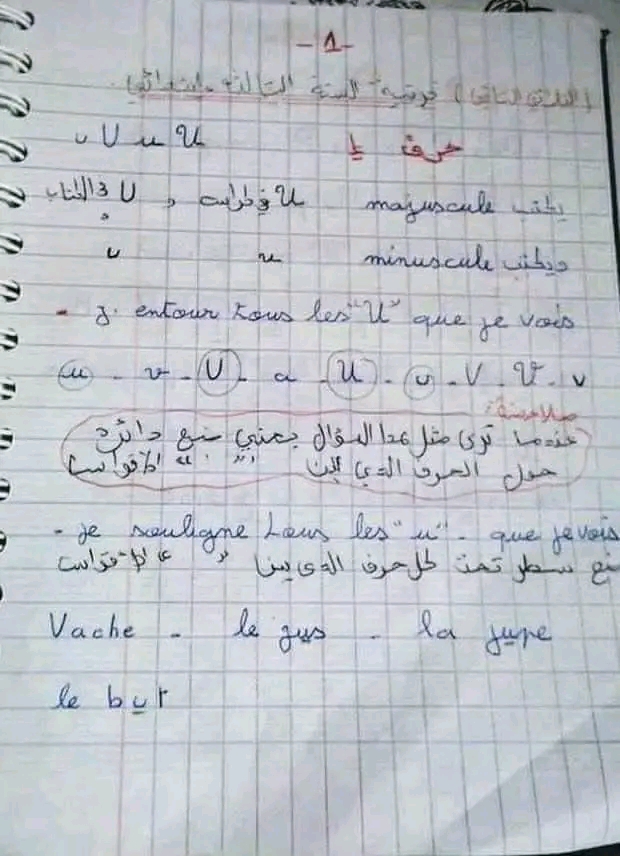 - 1 -
(الثلاثي الثاني) فرنسية السنة الثالثة ابتدائي
حرف u    U u U
يكتب majuscule U في كراس و U في الكتاب
ويكتب minuscule u u
- j'entour tous les "U" que je vois
u - v - U - a - U - u - V - V - v
ملاحظة:
عندما ترى مثل هذا السؤال يعني ضع دائرة
حول الحرف الذي بين " " الأقواس
- je souligne tous les "u" - que je vois
ضع سطر تحت كل حرف الذي بين " " الأقواس
Vache - le jus - la jupe
le but